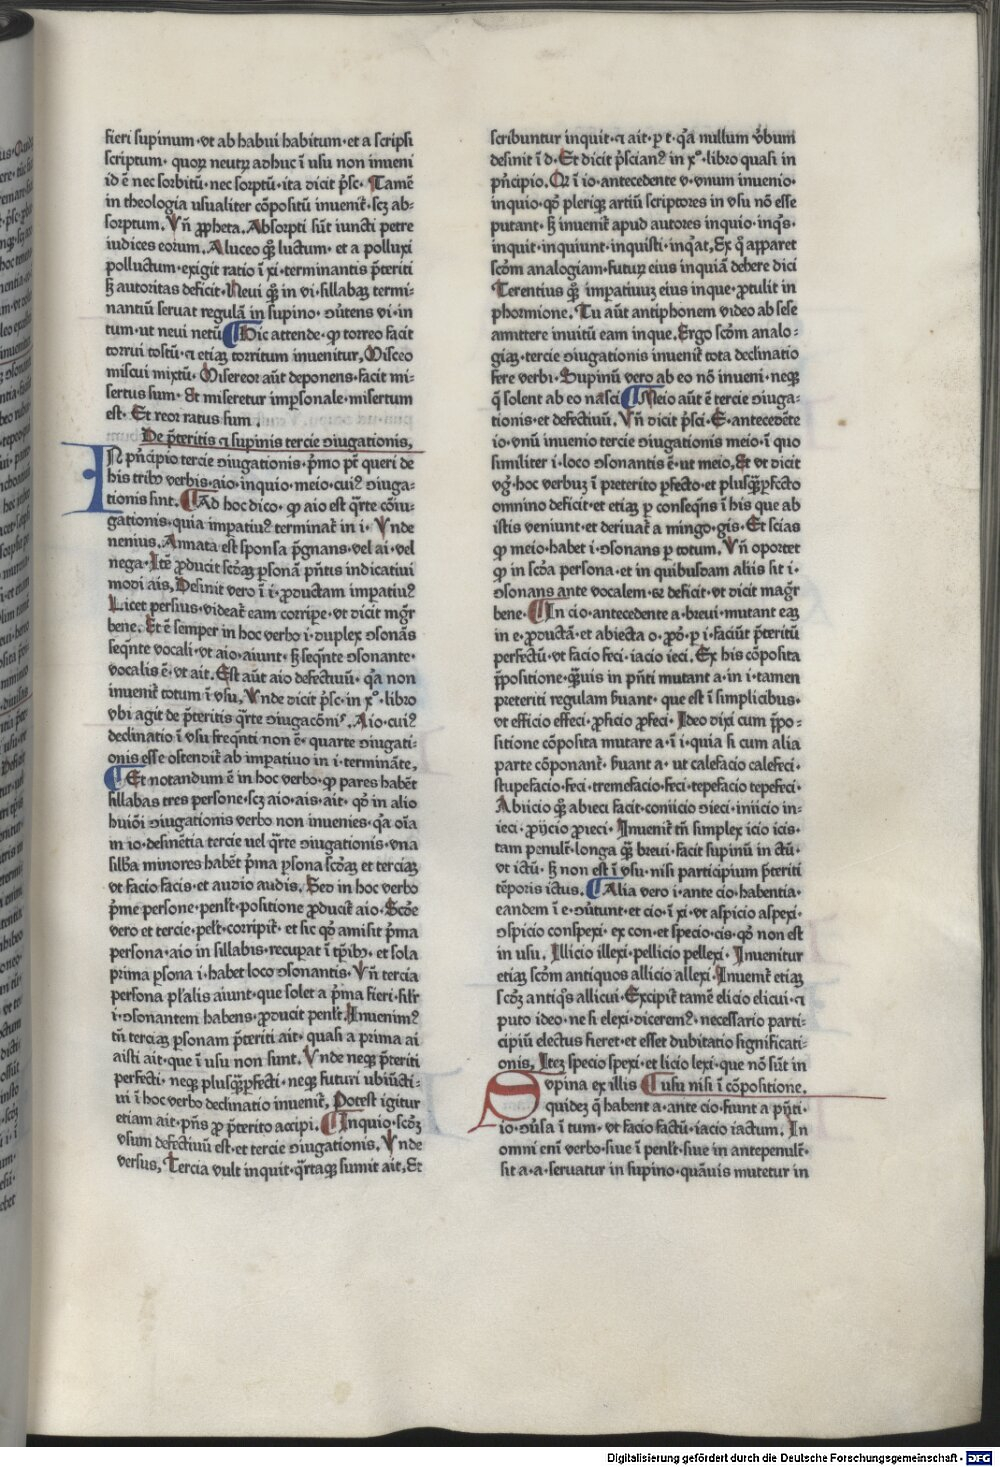 fieri supinum·vt ab habui habitum·et a scripsi
scriptum·quoꝝ neutꝝ adhuc ī usu non inveni
id ē nec sorbitū·nec sorptū·ita dicit p̄sc·Tamē
in theologia usualiter cōpositū invenit᷑·scꝫ ab-
sorptum.Vn̄ ꝓpheta.Absorpti sūt iuncti petre
iudices eorum.A luceo qꝫ luctum·et a polluxi
polluctum·exigit ratio ī xi·terminantis p̄teriti
sꝫ autoritas deficit·Nevi qꝫ in vi·sillabaꝫ termi-
nantiū servat regulā in supino·ↄ̄utens vi·in
tum·ut nevi netū ¶Hic attende·ꝙ torreo facit
torrui tostū·ꝛ etiaꝫ torritum invenitur,Misceo
miscui mixtū·Misereor aūt deponens·facit mi-
sertus sum·Et miseretur imꝑsonale·misertum
est·Et reor ratus sum.
De p̄teritis ꝛ supinis tercie ↄiugationis,
IN pn̄cipio tercie ↄiugationis·p̄mo pt̄ queri de
his tribꝰ verbis·aio·inquio·meio·cuiꝰ ↄiuga-
tionis sint.¶Ad hoc dico·ꝙ aio est qr̄te cōiu-
gationis·quia imꝑatiuꝰ terminat᷑ in i·Vnde
nenius.Annata est sponsa p̄gnans·vel ai·vel
nega·Itē ꝓducit scōaꝫ ꝑsonā pn̄tis indicativi
modi ais,Desinit vero ī i·ꝓductam imꝑatiuꝰ
Licet persius·videat᷑ eam corripe·vt dicit mgr̄
bene.Et ē semper in hoc verbo i·duplex ↄsonās
seqn̄te vocali·vt aio·aiunt·sꝫ seqn̄te ↄsonante·
vocalis ē·vt ait.Est aūt aio defectiuū·qa non
invenit᷑ totum ī usu,Vnde dicit p̄sc·in xº·libro
vbi agit de p̄teritis qr̄te ↄiugacōnis.Aio·cuiꝰ
declinatio ī usu freqn̄ti non ē·quarte ↄiugati-
onis esse ostendit᷑ ab imperativo in i·terminate,
¶Et notandum ē in hoc verbo·ꝙ pares habēt
sillabas tres persone·scꝫ aio·ais·ait·qº in alio
huiōi ↄiugationis verbo non invenies·qa oīa
in io·desinētia tercie vel qr̄te ↄiugationis·una
silba minores habēt p̄ma ꝑsona scōaꝫ et terciaꝫ
vt facio facis·et audio audis.Sed in hoc verbo
p̄me persone·penlt᷑·positione ꝓducit᷑ aio·Scōe
vero et tercie·pelt᷑·corripit᷑·et sic qº amisit p̄ma
persona·aio in sillabis·recupat ī tꝑibꝰ·et sola
prima ꝑsona i·habet loco ↄsonantis·Vn̄ tercia
persona pl̄alis aiunt·que solet a p̄ma fieri·silr̄
i·ↄsonantem habens·ꝓducit penlt᷑·Invenimꝰ
tn̄ terciaꝫ ꝑsonam p̄teriti ait·quasi a prima ai
aisti ait·que ī usu non sunt.Vnde neqꝫ p̄teriti
perfecti·neqꝫ plusqꝑfecti·neqꝫ futuri ubiūcti-
vi ī hoc verbo declinatio invenit᷑,Potest igitur
etiam ait·pn̄s ꝓ p̄terito accipi.¶Inquio·scōꝫ
usum defectiuū est·et tercie ↄiugationis.Vnde
versus,Tercia vult inquit·qr̄taqꝫ sumit ait,Et
scribuntur inquit·ꝛ ait·ꝑ t·qa nullum v̄bum
desinit ī d·Et dicit p̄scianꝰ in xº·libro quasi in
pn̄cipio.Or ī io·antecedente v·vnum invenio·
inquio·qº pleriqꝫ artiū scriptores in usu nō esse
putant·sꝫ invenit᷑ apud autores inquio·inqˢ·
inquit·inquiunt·inquisti·inqat,Ex q apparet
scōm analogiam·futuꝝ eius inquiā debere dici
Terentius qꝫ imꝑatiuuꝫ eius inque·ꝓtulit in
phormione.Tu aūt antiphonem video ab sese
amittere invitū eam inque.Ergo scōm analo-
giaꝫ·tercie ↄiugationis invenit᷑ tota declinatio
fere verbi·Supinū vero ab eo nō inveni·neqꝫ
q solent ab eo nasci ¶Meio aūt ē tercie ↄiuga-
tionis·et defectiuū.Vn̄ dicit p̄sci·E·antecedēte
io·vnū invenio tercie ↄiugationis meio·ī quo
similiter i·loco ↄsonantis ē·ut meio,Et vt dicit
vgꝰ·hoc verbuꝫ ī preterito ꝑfecto·et plusqꝑfcto
omnino deficit·et etiaꝫ ꝑ conseqn̄s ī his que ab
istis veniunt·et derivat᷑ a mingo·gis·Et scias
ꝙ meio·habet i·ↄsonans ꝑ totum.Vn̄ oportet
ꝙ in scōa persona·et in quibusdam aliis sit i·
ↄsonans ante vocalem·sꝫ deficit·vt dicit magr̄
bene·¶In cio·antecedente a·brevi·mutant eaꝫ
in e·ꝓductā·et abiecta o·ꝓpº·ꝑ i·faciūt p̄teritū
perfectū·vt facio feci·iacio ieci.Ex his cōposita
p̄positione·qꝫuis in pn̄ti mutant a·in i·tamen
preteriti regulam suant·que est ī simplicibus·
vt efficio effeci·ꝓficio ꝓfeci·Ideo dixi cum p̄po-
sitione cōposita mutare a·ī i·quia si cum alia
parte cōponant᷑·suant a·ut calefacio calefeci·
stupefacio·feci·tremefacio·feci·tepefacio tepefeci·
Abiicio qꝫ abieci facit·coniicio ↄieci·iniicio in-
ieci·ꝓiicio ꝓieci·Invenit᷑ tn̄ simplex icio icis·
tam penult᷑·longa qꝫ brevi·facit supinū in ctū·
vt ictū·sꝫ non est ī usu·nisi participium p̄teriti
tēporis ictus.¶Alia vero i·ante cio·habentia·
eandem ī e·ↄ̄utunt·et cio·ī xi·vt aspicio aspexi·
ↄspicio conspexi·ex con·et specio·cis·qº non est
in usu.Illicio illexi·pellicio pellexi.Invenitur
etiaꝫ scōm antiquos allicio allexi.Invenit᷑ etiaꝫ
scōꝫ antiqˢ allicui·Excipit᷑ tamē elicio elicui·ꝛ
puto ideo·ne si elexi·diceremꝰ·necessario parti-
cipiū electus fieret·et esset dubitatio significati-
onis,Iteꝫ specio spexi·et licio lexi·que nō sūt in
Supina ex illis ¶usu nisi ī cōpositione.
quideꝫ q habent a·ante cio·fiunt a pn̄ti·
io·ↄ̄usa ī tum·vt facio factū·iacio iactum.In
omni eni verbo·sive ī penlt᷑·sive in antepenult᷑·
sit a·a·servatur in supino·quāuis mutetur in
Digitalisierung gefördert durch die Deutsche Forschungsgemeinschaft - DFG